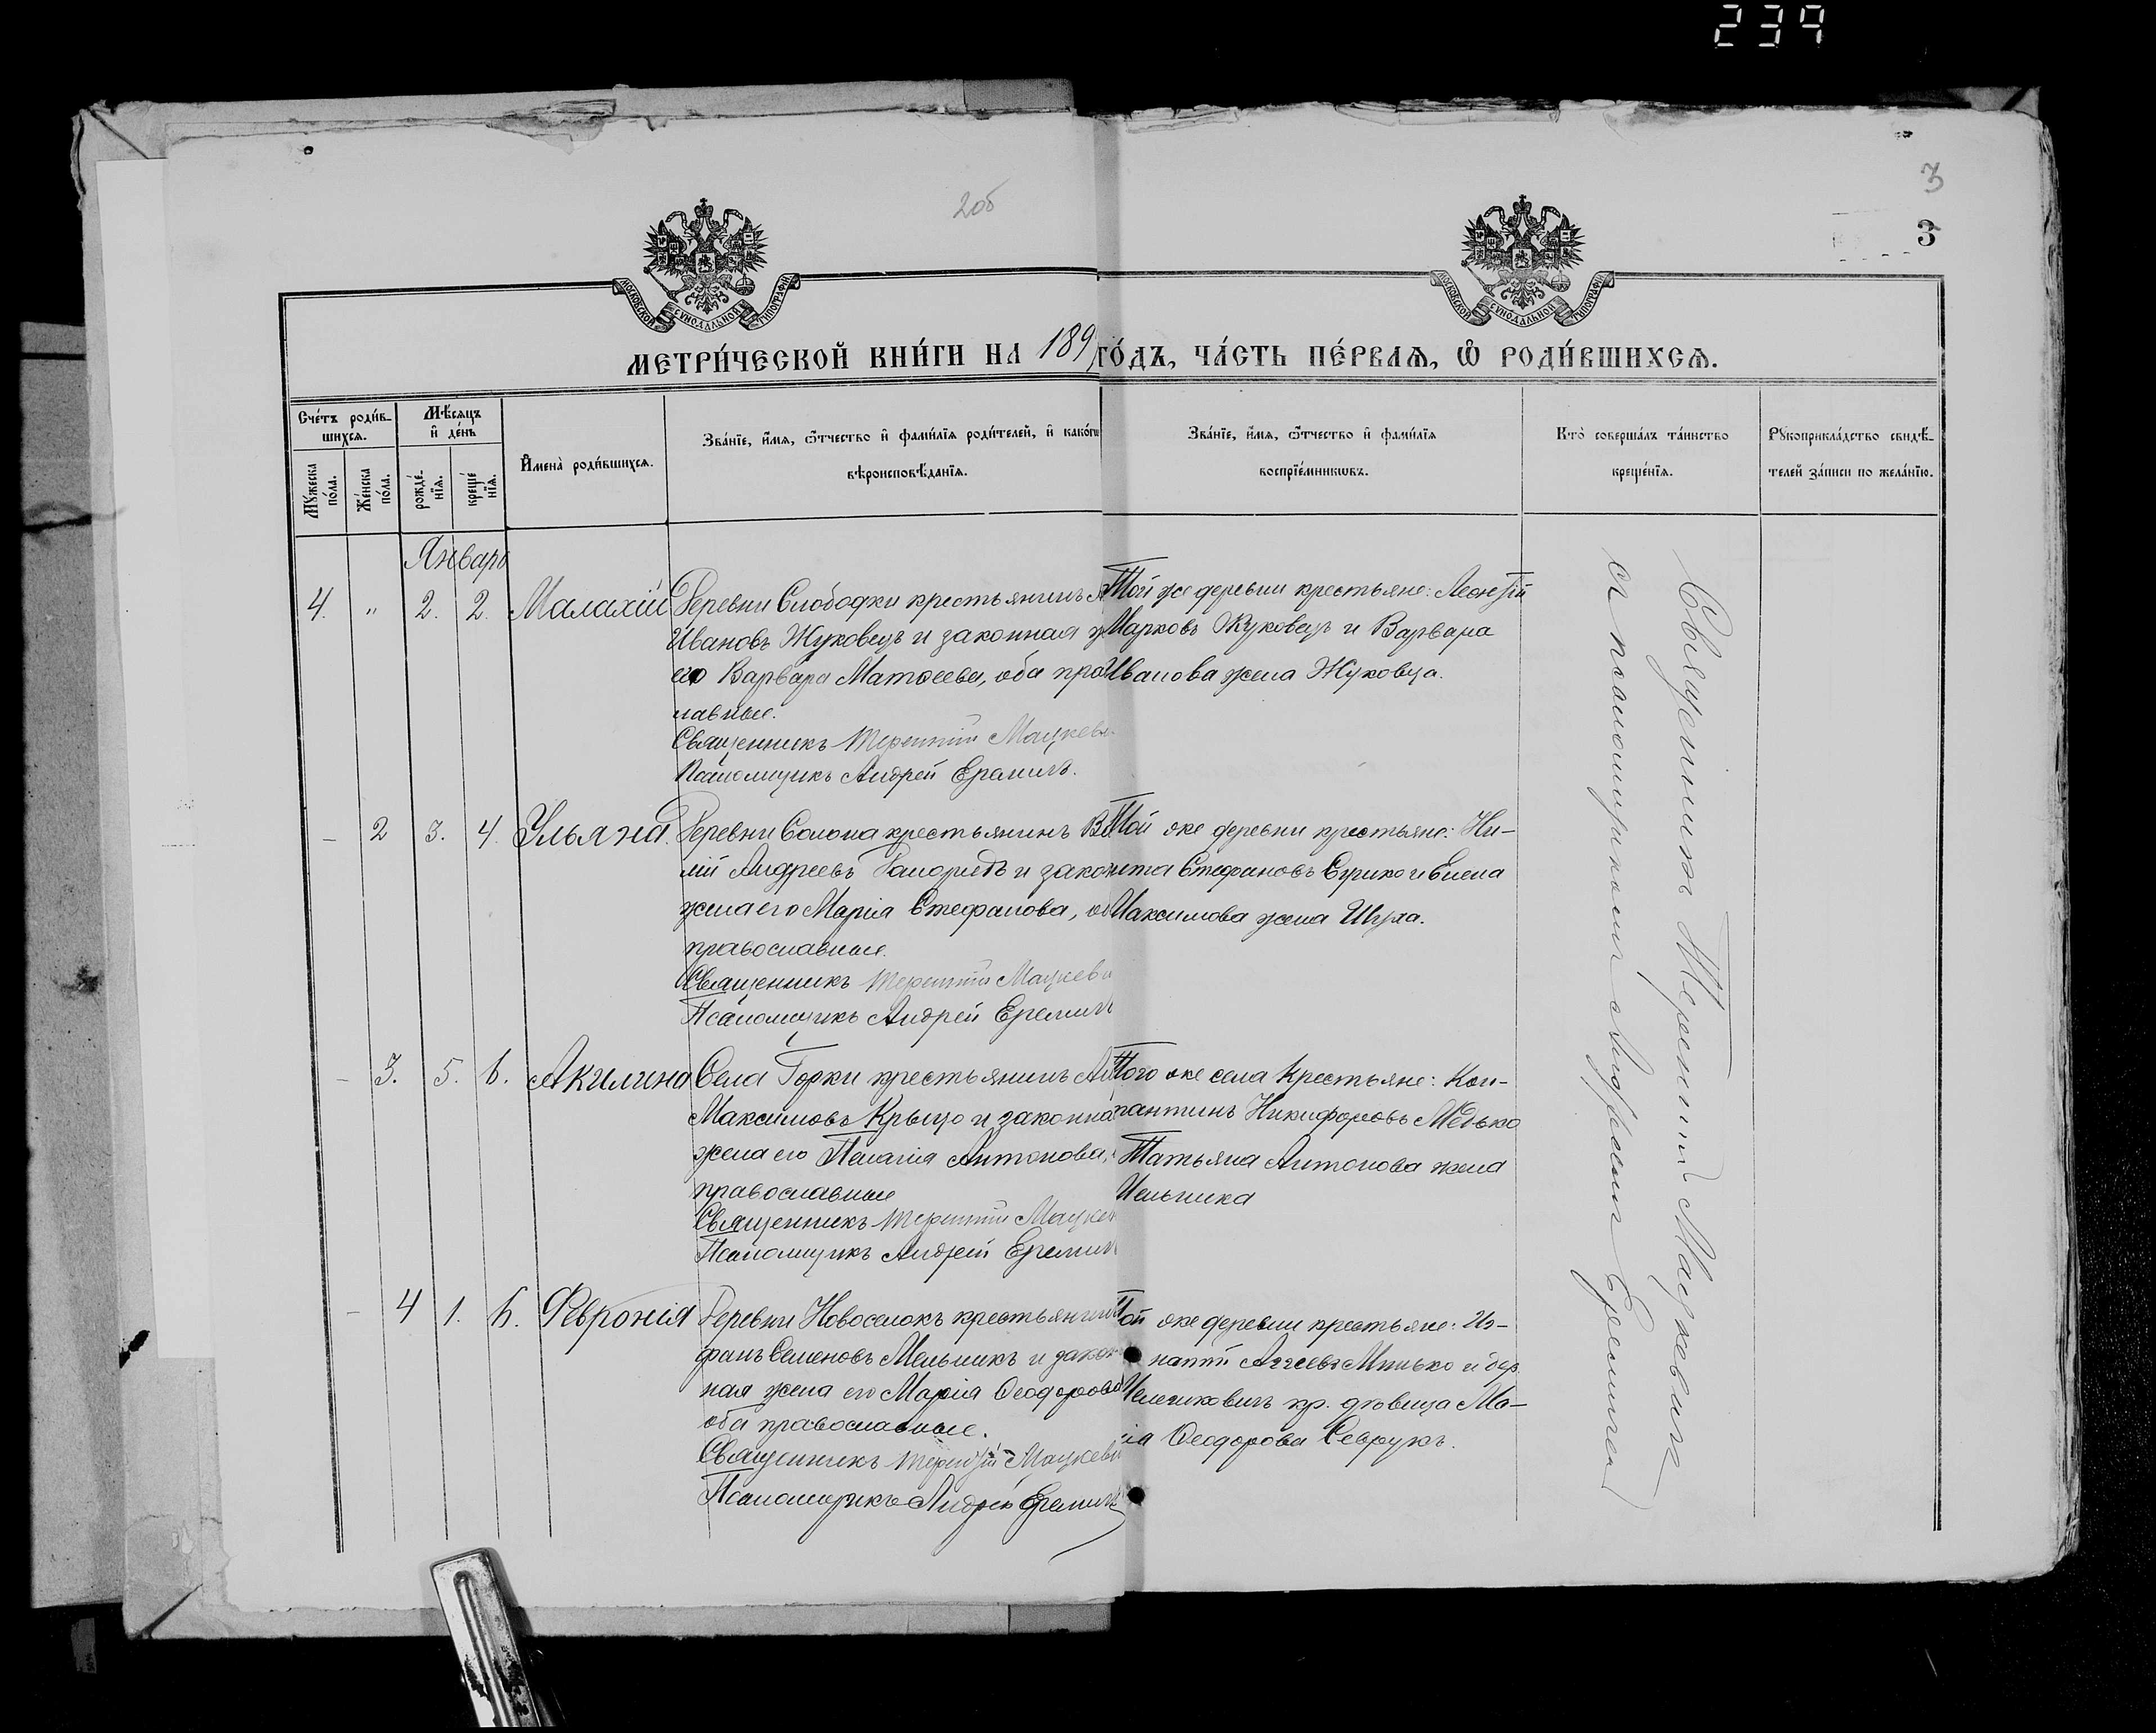 239
20б
3
3
МОСКОВСКОЙ СѴНОДАЛЬНОЙ ТИПОГРАФІИ
МОСКОВСКОЙ СѴНОДАЛЬНОЙ ТИПОГРАФІИ
МЕТРИ́ЧЕСКОЙ КНИ́ГИ НА 189
ГО́ДЪ, ЧА́СТЬ ПЕ́РВАѦ, Ѽ РОДИ́ВШИХСѦ.
Сче́тъ роди́в-
шихсѧ.
Мѣ́сѧцъ
и҆ де́нь
Мꙋ́жеска по́ла.
Же́нска по́ла.
рожде́-нїѧ.
креще́нїѧ.
И҆мена̀ роди́вшихсѧ.
Зва́нїе, и҆́мѧ, ѻ҆́тчество и҆ фами́лїѧ роди́телей, и҆ како́гѡ
вѣроисповѣ́данїѧ.
Зва́нїе, и҆́мѧ, ѻ҆́тчество и҆ фами́лїѧ
воспрїе́мникѡвъ.
Кто̀ соверша́лъ та́инство
креще́нїѧ.
Рꙋкоприкла́дство свидѣ́-
телей за́писи по жела́нїю.
Январь
4. " 2. 2. Малахій
Деревни Слободки крестьянинъ
Ивановъ Жуковецъ и законная
его Варвара Матѳеева, оба пра
лавные.
Священникъ Терентій Мацкеви
Псаломщикъ Андрей Еремичъ.
Той же деревни крестьяне: Леонтій
Марковъ Жуковецъ и Варвара
Иванова жена Жуковца.
- 2 3. 4. Ульяна.
Деревни Солона крестьянинъ Ва
лій Андреевъ и закон
жена его Марія Стефанова, об
православные.
Священникъ Терентій Мацкеви
Псаломщикъ Андрей Еремич
Той же деревни крестьяне: Ни-
кита Стефановъ и Елена
Максимова жена Шуха.
- 3. 5. 6. Акилина
Села Горки крестьянинъ
Максимовъ и законна
жена его Пелагія Антонова,
православные
Священникъ Терентій Мацкев
Псаломщикъ Андрей Еремич
Того же села крестьяне: Кон-
тантинъ Никифоровъ Медько
Татьяна Антонова жена
Мельника
- 4 1. 6. Февронія
Деревни Новоселокъ крестьянин
фанъ Семеновъ Мельникъ и закон
ная жена его Марія Ѳеодорова
оба православные.
Священникъ Терентій Мацкеви
Псаломщикъ Андрей Еремичъ
ой же деревни крестьяне: Иг-
натій Аггеевъ Минько и дер.
кр. дѣвица Ма-
ія Ѳеодорова Севрукъ.
Священникъ Терентий Мацкевич
с псаломщиком Андреем Еремичем